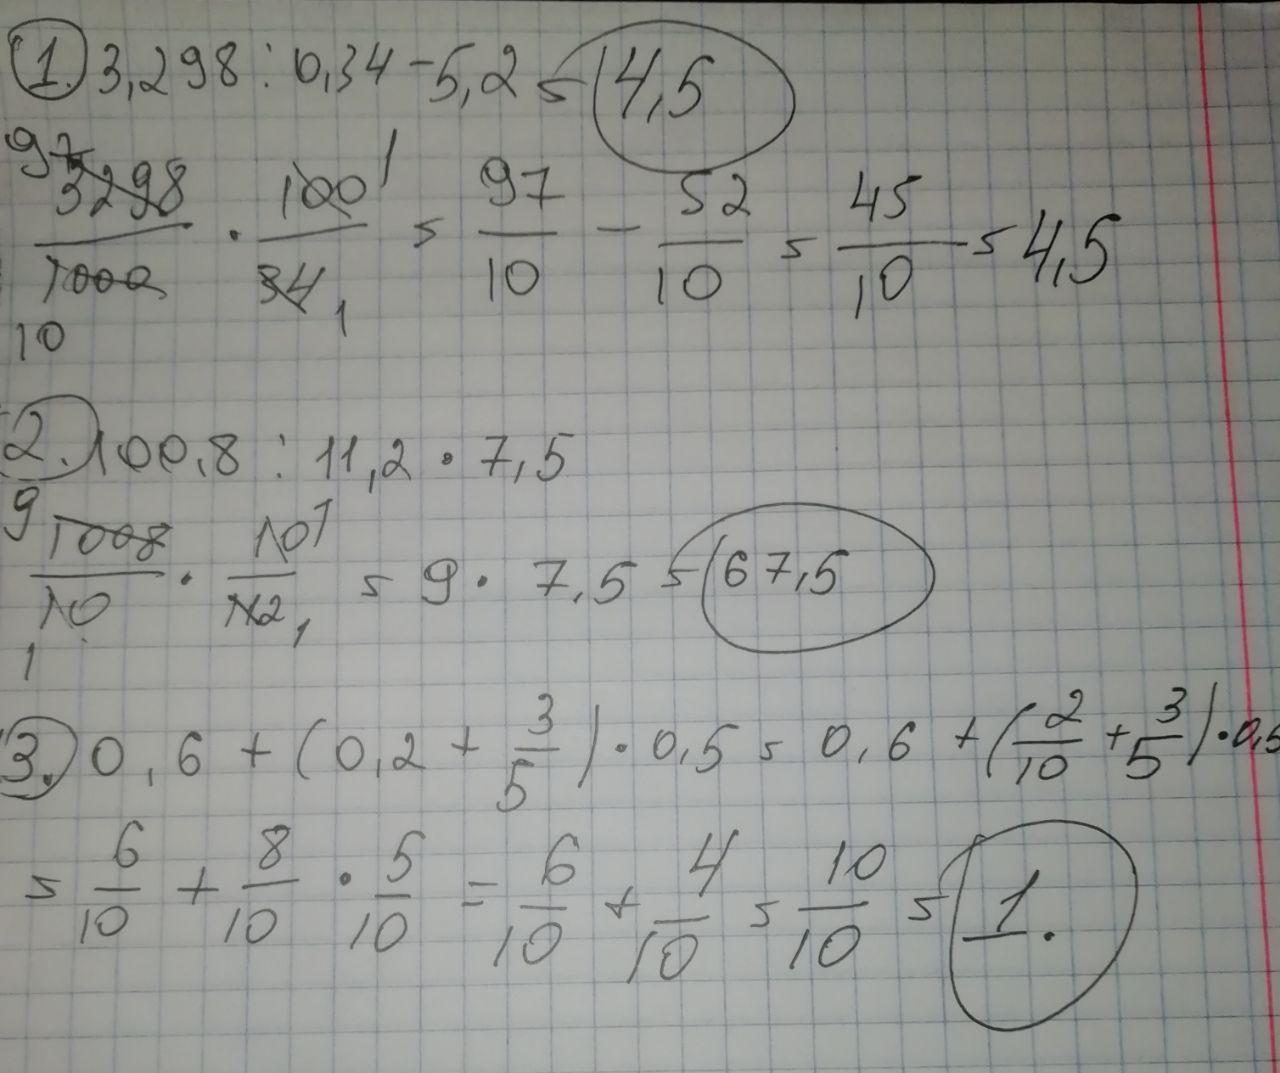 1. 3,298 : 0,34 - 5,2 = 4,5
97 3298/1000 10 · 100/34 1 1 = 97/10 - 52/10 = 45/10 = 4,5
2. 100,8 : 11,2 · 7,5
9 1008/10 1 · 10/112 1 1 = 9 · 7,5 = 67,5
3. 0,6 + (0,2 + 3/5) · 0,5 = 0,6 + (2/10 + 3/5) · 0,5
= 6/10 + 8/10 · 5/10 = 6/10 + 4/10 = 10/10 = 1.